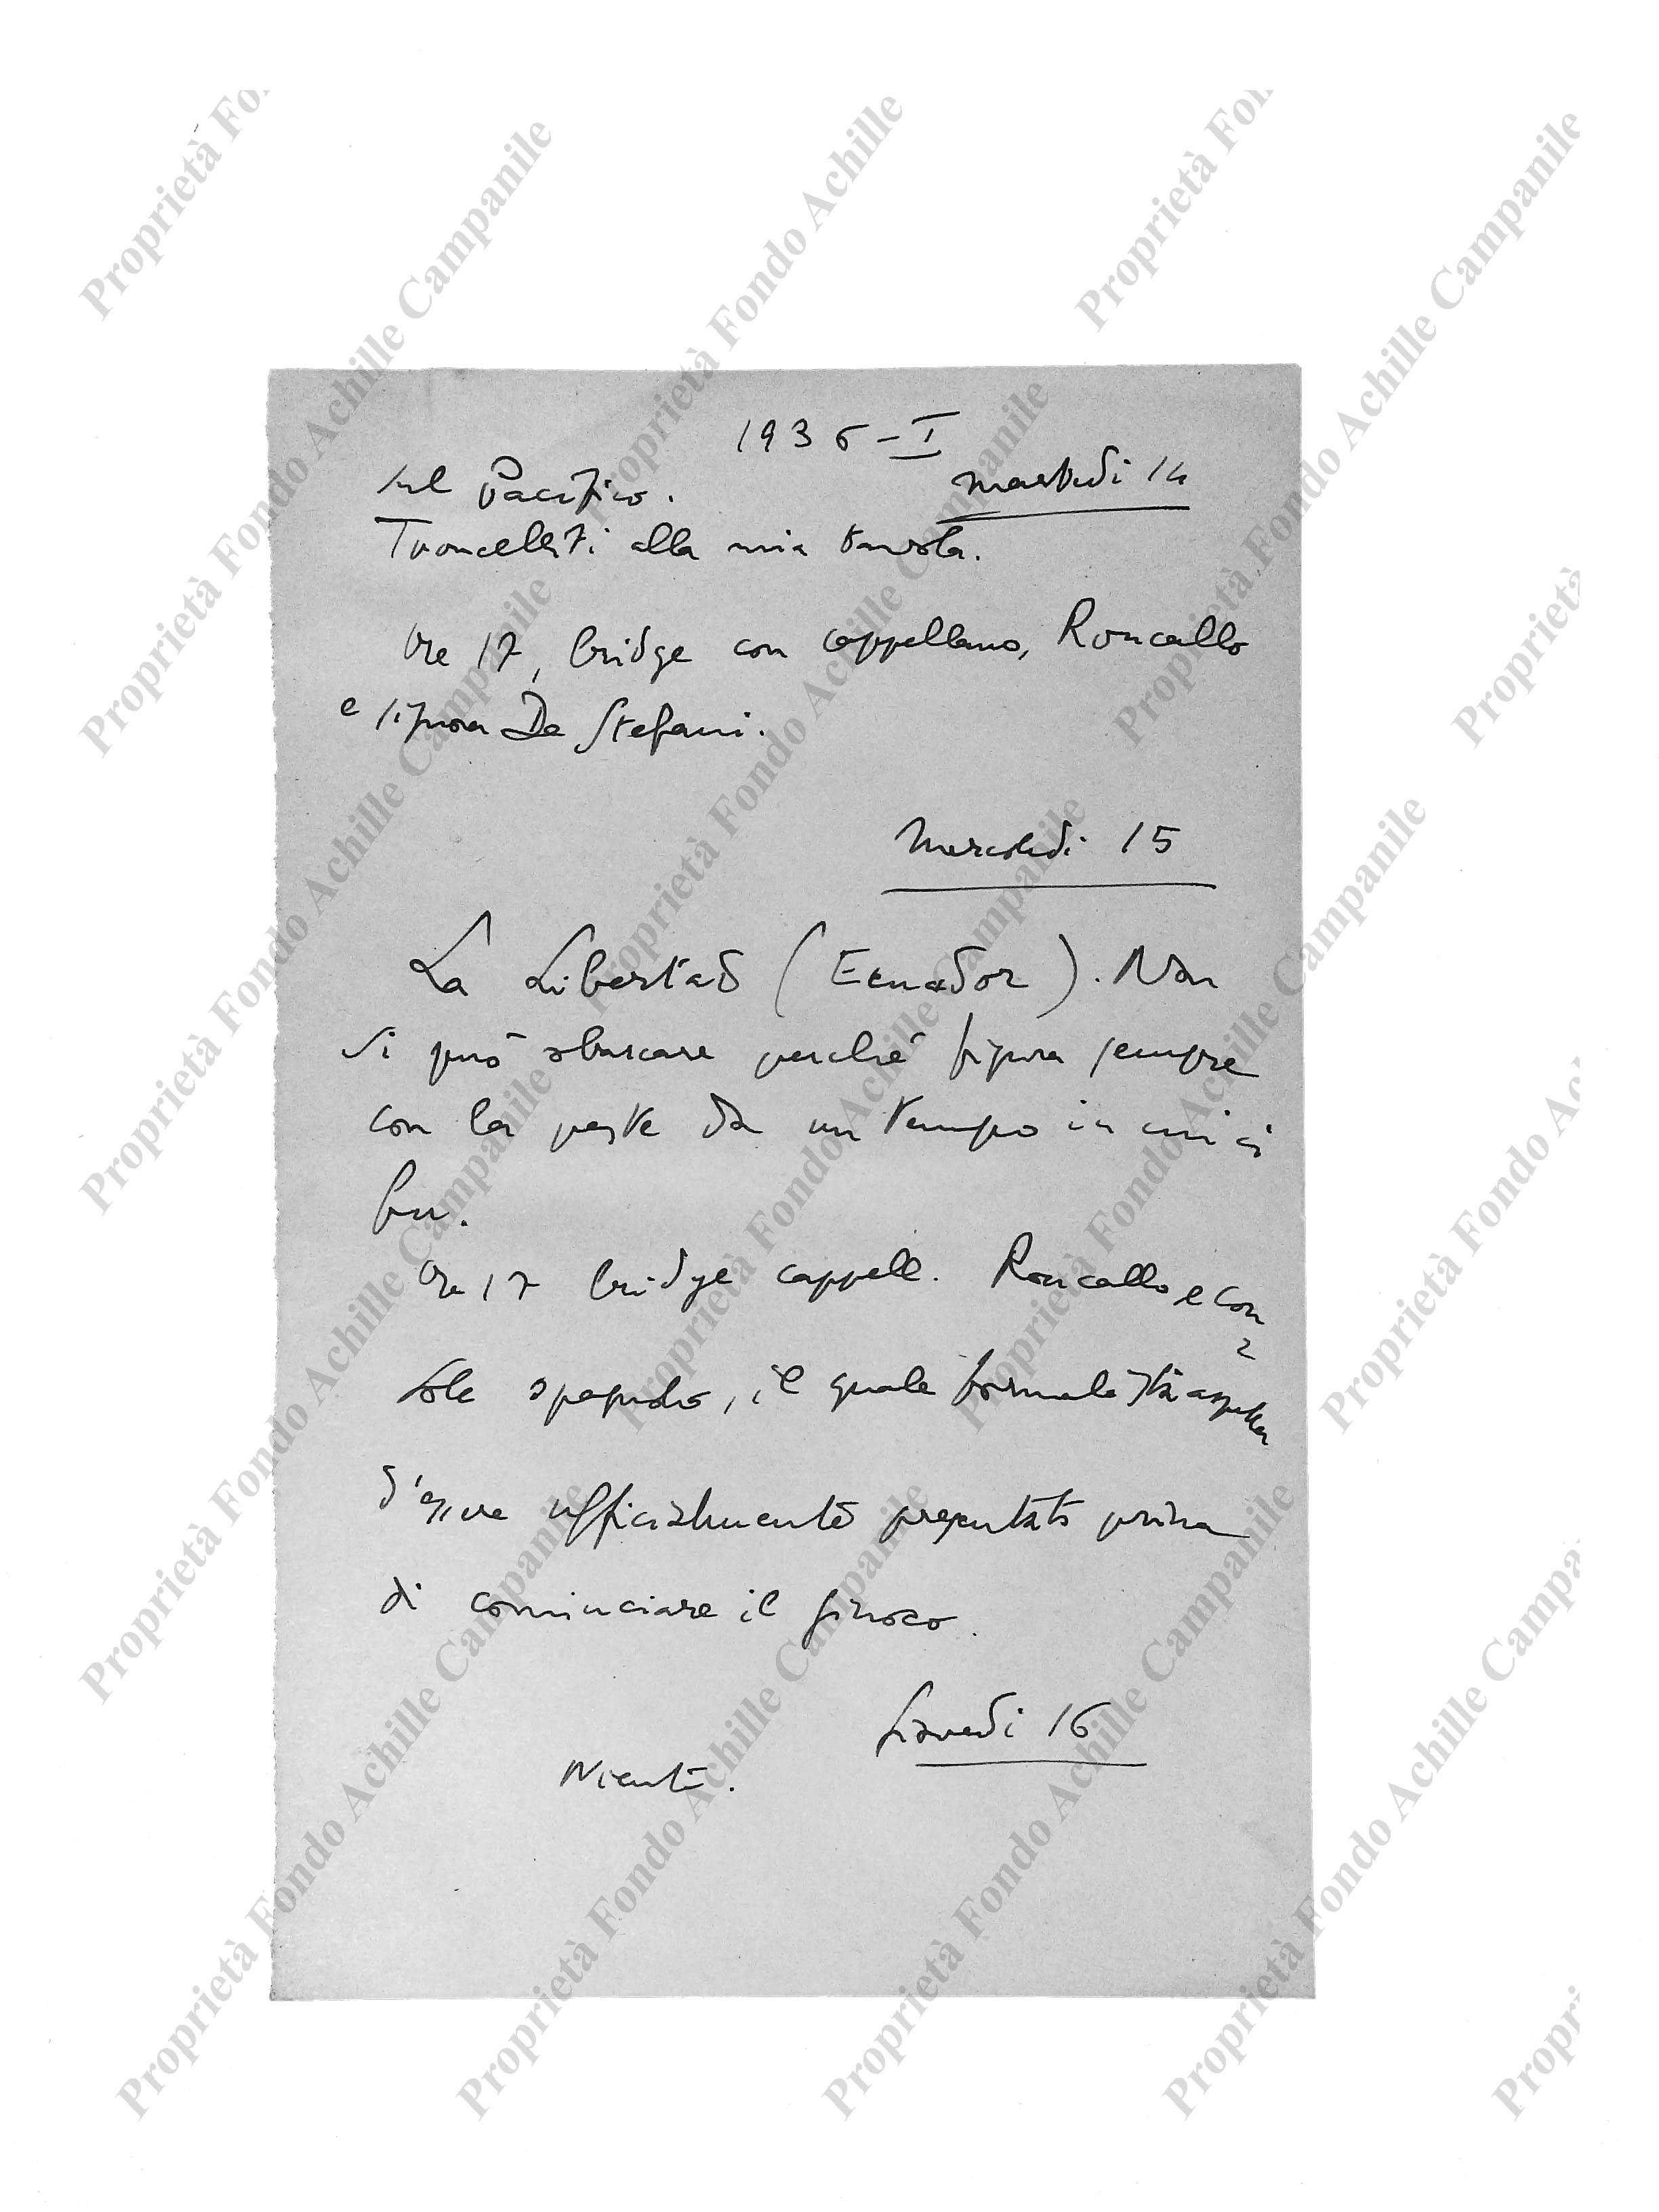 1936 - I
Sul Pacifico. martedì 14
Troncelliti alla mia tavola.
Ore 17, bridge con cappellano, Roncallo
e signora De Stefani.
Mercoledì 15
La Libertad (Ecuador). Non
si può sbarcare perché figura sempre
con la peste da un tempo in cui ci
fu.
Ore 17 bridge cappell. Roncallo e con
sole spagnolo, il quale formalista aspetta
d'essere ufficialmente presentato prima
di cominciare il giuoco.
Giovedì 16
Niente.
Proprietà Fondo Achille Campanile